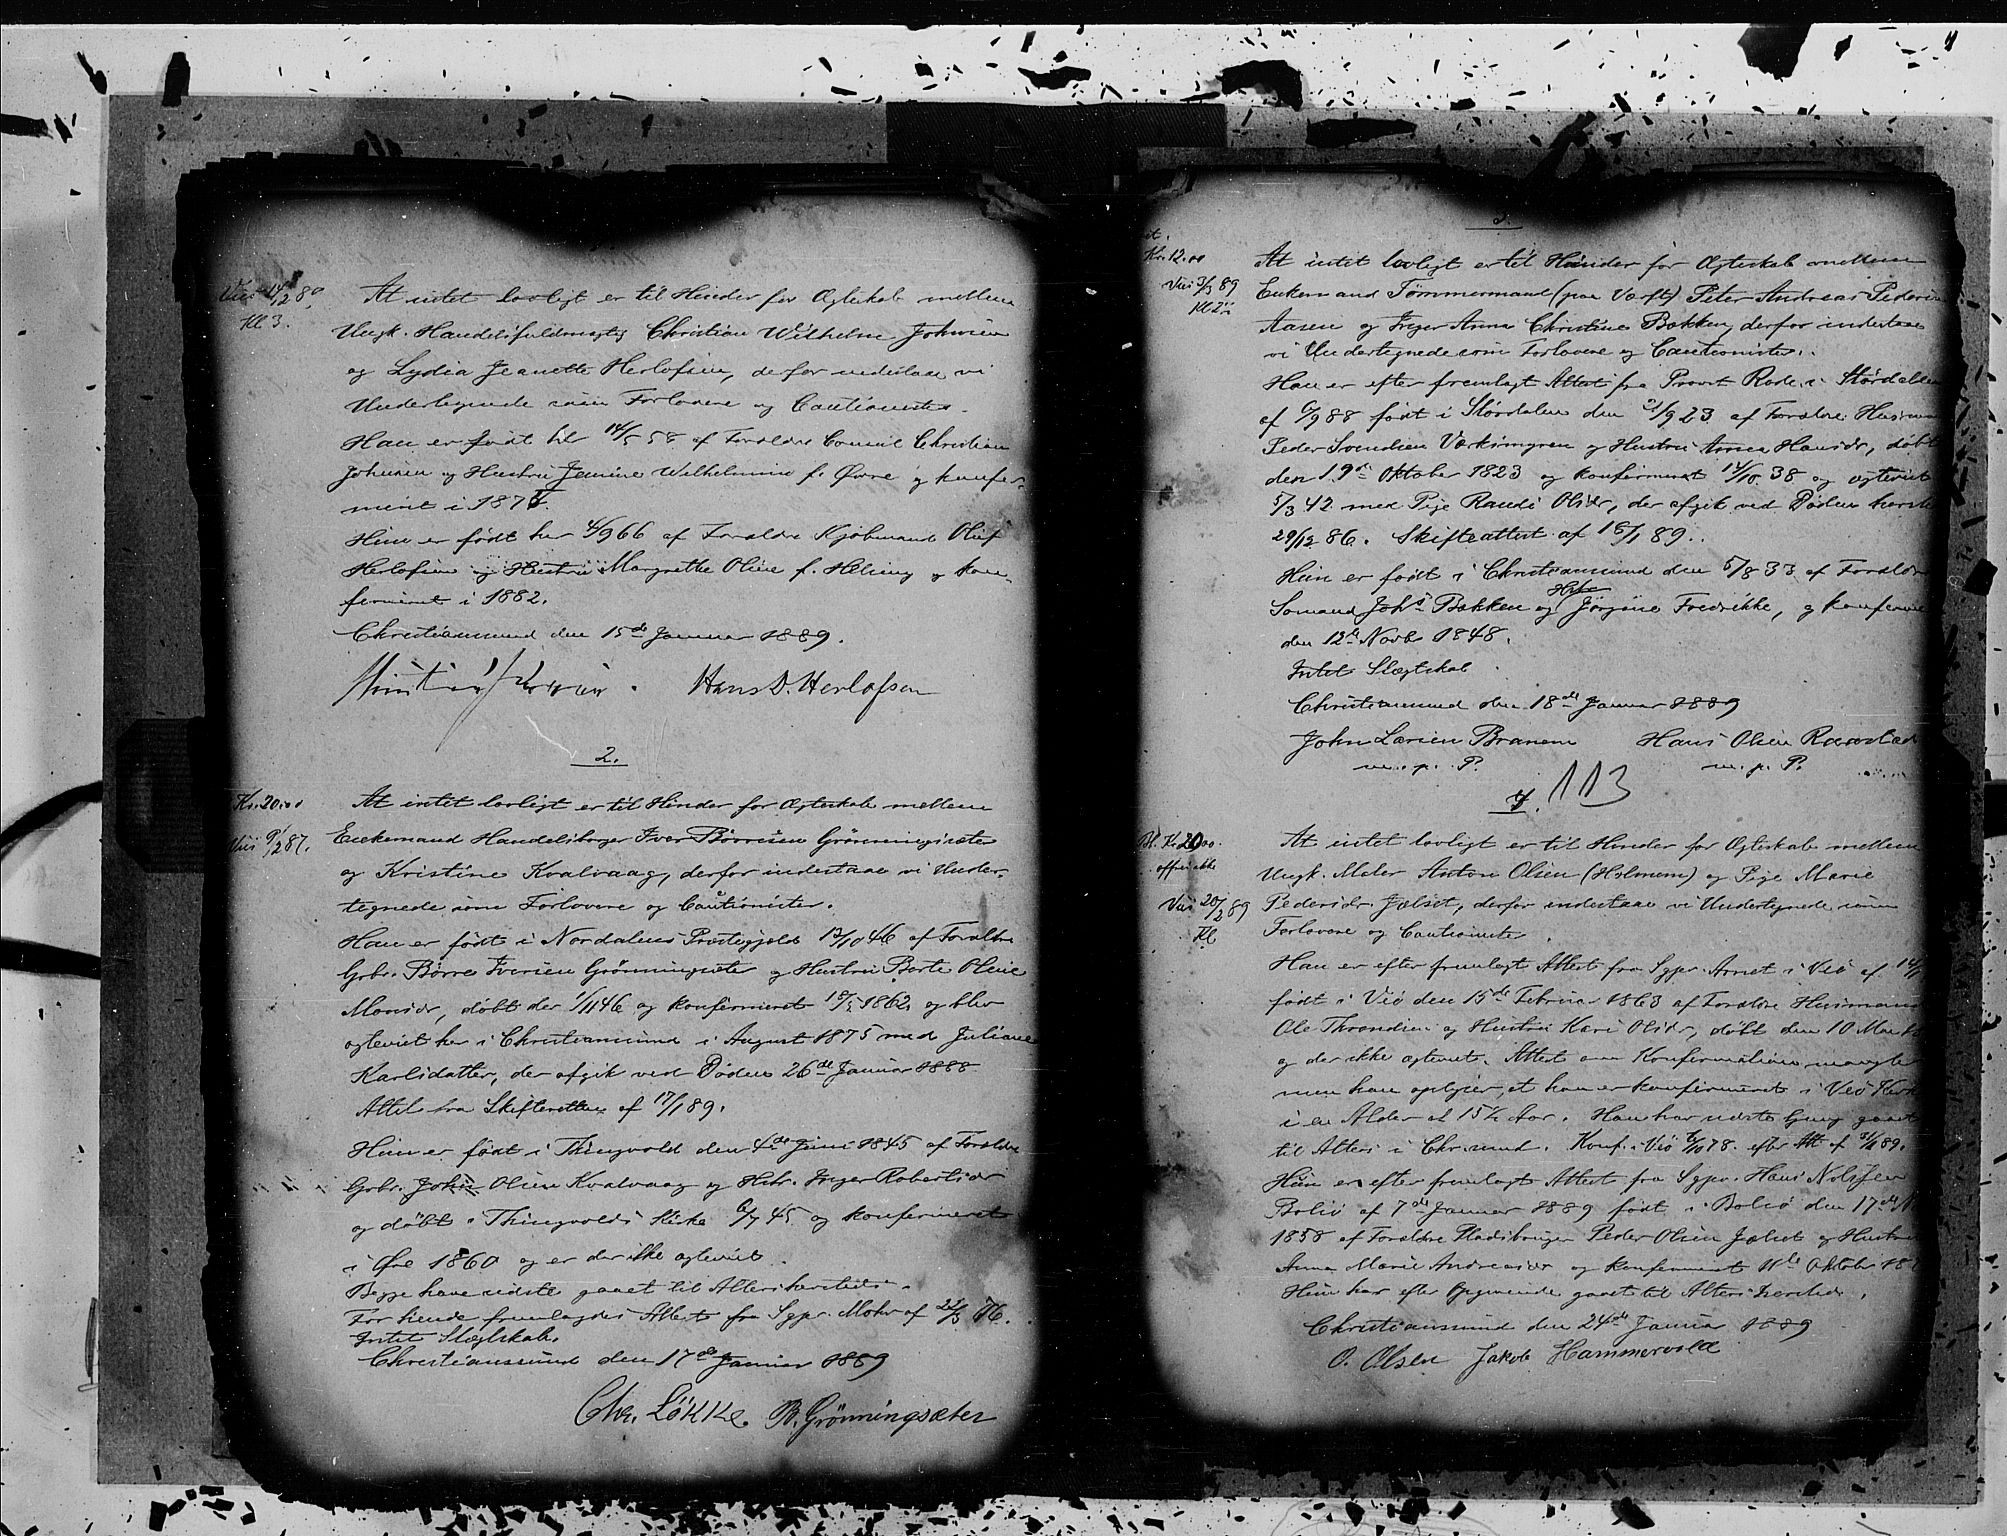 Viet 14/2 89
Kl 3.
At intet lovligt er til Hinder for Ægteskab mellem
Ungk. Handelsfuldmægtig Christian Wilhelm Johnsen
og Lydia Jeanette Herlofsen, derfor indestaae vi
Undertegnede som Forlovere og Cautionister.
Han er født her 14/5 58 af Forældre Consul Christian
Johnsen og Hustru Jenine Wilhelmine f. Øvre og konfir-
meret i 187
Hun er født her 4/9 66 af Forældre Kjøbmand Oluf
Herlofsen og Hustru Margrethe Oline f. og kon-
firmeret i 1882.
Christianssund den 15de Januar 1889.
Hans D. Herlofsen
2.
Kr. 20.00
Viet 9/2 87.
At intet lovligt er til Hinder for Ægteskab mellem
Enkemand Handelsborger Iver Børresen Grønningsæter
og Kristine Kvalvaag, derfor indestaae vi Under-
tegnede som Forlovere og Cautionister.
Han er født i Nordalens Præstegjeld 12/10 46 af Forældre
Gbr. Børre Iversen Grønningsæter og Hustru Berte Oline
Monsdr, døbt der 1/11 46 og konfirmeret 1862 og blev
ægteviet her i Christianssund i August 1875 med Juliane
Karlsdatter, der afgik ved Døden 26de Januar 1888
Attest fra Skifteretten af 17/1 89.
Hun er født i Thingvold den 4de Juni 1845 af Forældre
Gbr. John Olsen Kvalvaag og Hstr. Inger Robertsdr
og døbt i Thingvolds Kirke 6/7 45 og konfirmeret
i Øre 1860 og er der ikke ægteviet.
Begge have sidste gaaet til Alters hersteds.
For hende fremlagdes Attest fra Sgpr. Mohr af 22/3 76.
Intet Slægtskab.
Christianssund den 17de Januar 1889
Chr. Løkke B. Grönningsæter
3.
Kr. 12.00
Viet 3/3 89
Kl 2
At intet lovligt er til Hinder for Ægteskab mellem
Enkemand Tømmermand (paa Værft) Peter Andreas Pedersen
Aasen og Inger Anna Christine Bækken, derfor indestaae
vi Undertegnede som Forlovere og Cautionister.
Han er efter fremlagt Attest fra Provst Rode i Størdalen
af 6/9 88 født i Størdalen den 21/9 23 af Forældre Husmand
Peder Svendsen Værksmyren og Hustru Anna Hansdr, døbt
den 19de Oktober 1823 og konfirmeret 14/10 38 og ægteviet
5/3 42 med Pige Randi Olsdr, der afgik ved Døden herst
29/12 86. Skifteattest af 18/1 89.
Hun er født i Christianssund den 5/8 33 af Forældre
Sømand Johs Bækken og Hstr Jørgine Fredrikke, og konfirme
den 12te Novbr 1848.
Intet Slægtskab
Christianssund den 18de Januar 1889
John Larsen Branem Hans Olsen
m. p. P. m. p. P.
4. 113
Bl. Kr. 20.00.
offrer ikke
Viet 20/2 89
Kl
At intet lovligt er til Hinder for Ægteskab mellem
Ungk. Maler Anton Olsen (Holmem) og Pige Marie
Pedersdr. Jælset, derfor indestaae vi Undertegnede som
Forlovere og Cautionister.
Han er efter fremlagt Attest fra Sgpr. Arnet i Veø af 14/1
født i Veø den 15de Februar 1863 af Forældre Husmand
Ole Throndsen og Hustru Kari Olsdr, døbt den 10 Marts
og der ikke ægteviet. Attest om Konfirmation mangler
men han oplyser, at han er konfirmeret i Veø Kirke
i en Alder af 15½ Aar. Han har sidste Gang gaaet
til Alters i Chr.sund. Konf. i Veø 6/10 78. efter Att af 31/1 89.
Hun er efter fremlagt Attest fra Sgpr. Hans
Bolsø af 7de Januar 1889 født i Bolsø den 17de
1858 af Forældre Pladsbruger Peder Olsen Jælset og Hustru
Anna Marie Andreasdr og konfirmeret 11te Oktober 187
Hun har efter Opgivende gaaet til Alters hersteds.
Christianssund den 24de Januar 1889
O. Olsen Jakob Hammervold